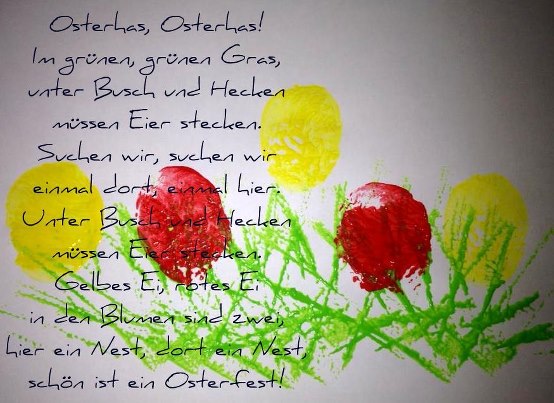 Osterhas, Osterhas!
Im grünen, grünen Gras,
unter Busch und Hecken
müssen Eier stecken.
Suchen wir, suchen wir
einmal dort, einmal hier.
Unter Busch und Hecken
müssen Eier stecken.
Gelbes Ei, rotes Ei
in den Blumen sind zwei,
hier ein Nest, dort ein Nest,
schön ist ein Osterfest!